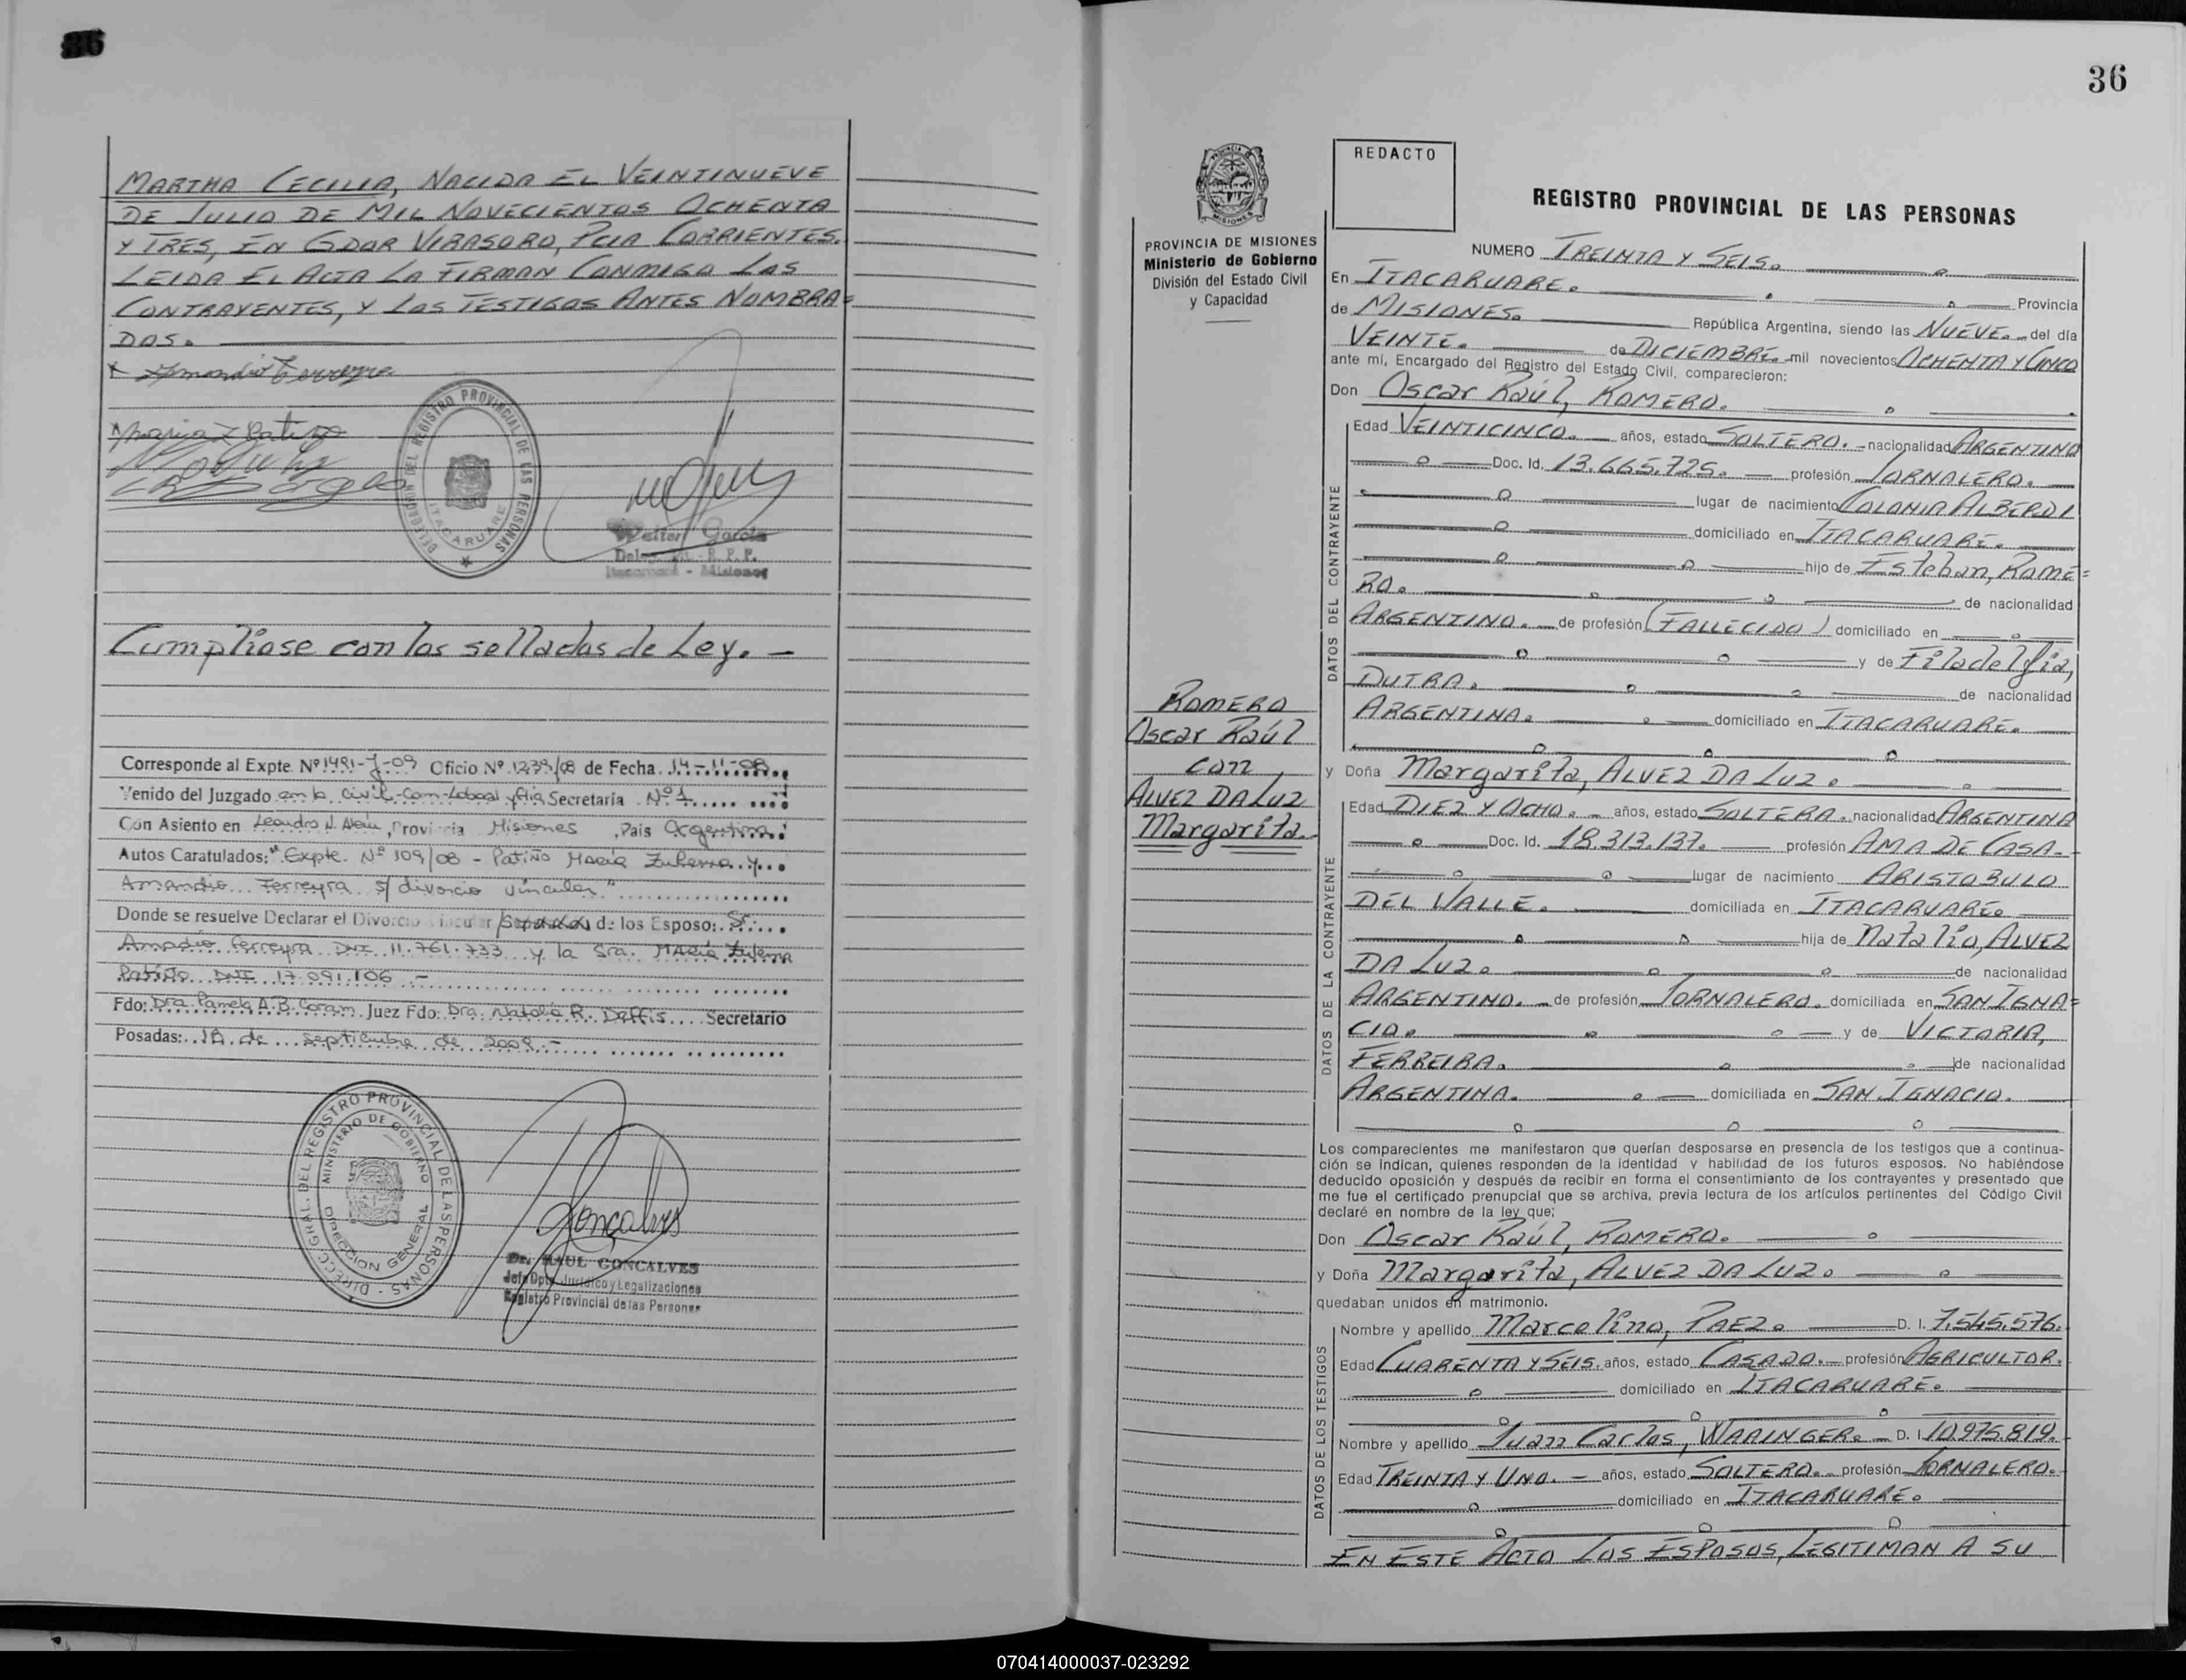 36
MARTHA CECILIA, NACIDA EL VEINTINUEVE
DE JULIO DE MIL NOVECIENTOS OCHENTA
Y TRES, EN GDOR VIRASORO, PCIA CORRIENTES.
LEIDA EL ACTA LA FIRMAN CONMIGO LOS
CONTRAYENTES, Y LOS TESTIGOS ANTES NOMBRA=
DOS.
DELEGACION DEL REGISTRO PROVINCIAL DE LAS PERSONAS
ITACARUARE
Walter Garcia
R. P. P.
Itacaruaré - Misiones
Cumpliose con los sellados de Ley. -
Corresponde al Expte. Nº 1491-J-09 Oficio Nº 1239/08 de Fecha 14-11-08
Venido del Juzgado en lo Civil-Com-Laboral y Flia Secretaría Nº 1
Con Asiento en Leandro N. Alem, Provincia Misiones, País Argentina
Autos Caratulados: "Expte. Nº 109/08 - Patiño María Zulema y
Amandio Ferreyra s/ divorcio vincular"
Donde se resuelve Declarar el Divorcio Vincular / de los Esposo: Sr.
Amadio Ferreyra DNI 11.761.733 y la Sra. María Zulema
Patiño DNI 17.091.106 -
Fdo: Dra. Pamela A.B. Juez Fdo: Dra. Natalia R. Secretario
Posadas: 18 de septiembre de 2009.-
DIRECC. GRAL. DEL REGISTRO PROVINCIAL DE LAS PERSONAS
MINISTERIO DE GOBIERNO
DIRECCION GENERAL
Dr. RAUL GONCALVES
Jefe Dpto. Jurídico y Legalizaciones
Registro Provincial de las Personas
36
REDACTO
MISIONES
PROVINCIA DE MISIONES
Ministerio de Gobierno
División del Estado Civil
y Capacidad
ROMERO
Oscar Raúl
con
ALVEZ DA LUZ
Margarita.
REGISTRO PROVINCIAL DE LAS PERSONAS
NUMERO TREINTA Y SEIS.
En ITACARUARE. Provincia
de MISIONES. República Argentina, siendo las NUEVE. del día
VEINTE. de DICIEMBRE. mil novecientos OCHENTA Y CINCO
ante mí, Encargado del Registro del Estado Civil, comparecieron:
Don Oscar Raúl, ROMERO.
DATOS DEL CONTRAYENTE
Edad VEINTICINCO. años, estado SOLTERO. nacionalidad ARGENTINO
Doc. Id. 13.665.725. profesión JORNALERO.
lugar de nacimiento COLONIA ALBERDI
domiciliado en ITACARUARE.
hijo de Esteban, ROME=
RO. de nacionalidad
ARGENTINO. de profesión (FALLECIDO) domiciliado en
y de Filadelfia,
DUTRA. de nacionalidad
ARGENTINA. domiciliado en ITACARUARE.
y Doña Margarita, ALVEZ DA LUZ.
DATOS DE LA CONTRAYENTE
Edad DIEZ Y OCHO. años, estado SOLTERA. nacionalidad ARGENTINA
Doc. Id. 18.313.137. profesión AMA DE CASA.
lugar de nacimiento ARISTOBULO
DEL VALLE. domiciliada en ITACARUARE.
hija de Natalio, ALVEZ
DA LUZ. de nacionalidad
ARGENTINO. de profesión JORNALERO. domiciliada en SAN IGNA=
CIO. y de VICTORIA,
FERREIRA. de nacionalidad
ARGENTINA. domiciliada en SAN IGNACIO.
Los comparecientes me manifestaron que querían desposarse en presencia de los testigos que a continua-
ción se indican, quienes responden de la identidad y habilidad de los futuros esposos. No habiéndose
deducido oposición y después de recibir en forma el consentimiento de los contrayentes y presentado que
me fue el certificado prenupcial que se archiva, previa lectura de los artículos pertinentes del Código Civil
declaré en nombre de la ley que;
Don Oscar Raúl, ROMERO.
y Doña Margarita, ALVEZ DA LUZ.
quedaban unidos en matrimonio.
DATOS DE LOS TESTIGOS
Nombre y apellido Marcelino, PAEZ. D. I. 7.545.576.
Edad CUARENTA Y SEIS. años, estado CASADO. profesión AGRICULTOR.
domiciliado en ITACARUARE.
Nombre y apellido Juan Carlos, WARINGER. D. I. 10.975.819.
Edad TREINTA Y UNO. años, estado SOLTERO. profesión JORNALERO.
domiciliado en ITACARUARE.
EN ESTE ACTO LOS ESPOSOS, LEGITIMAN A SU
070414000037-023292